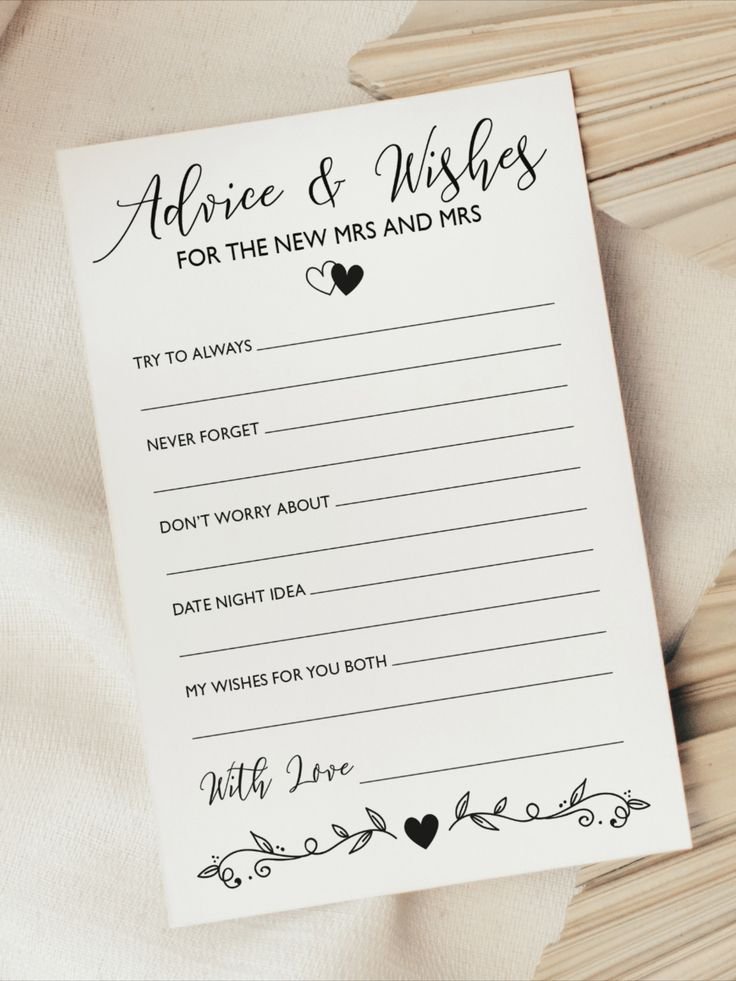 Advice & Wishes
FOR THE NEW MRS AND MRS
TRY TO ALWAYS
NEVER FORGET
DON'T WORRY ABOUT
DATE NIGHT IDEA
MY WISHES FOR YOU BOTH
With Love